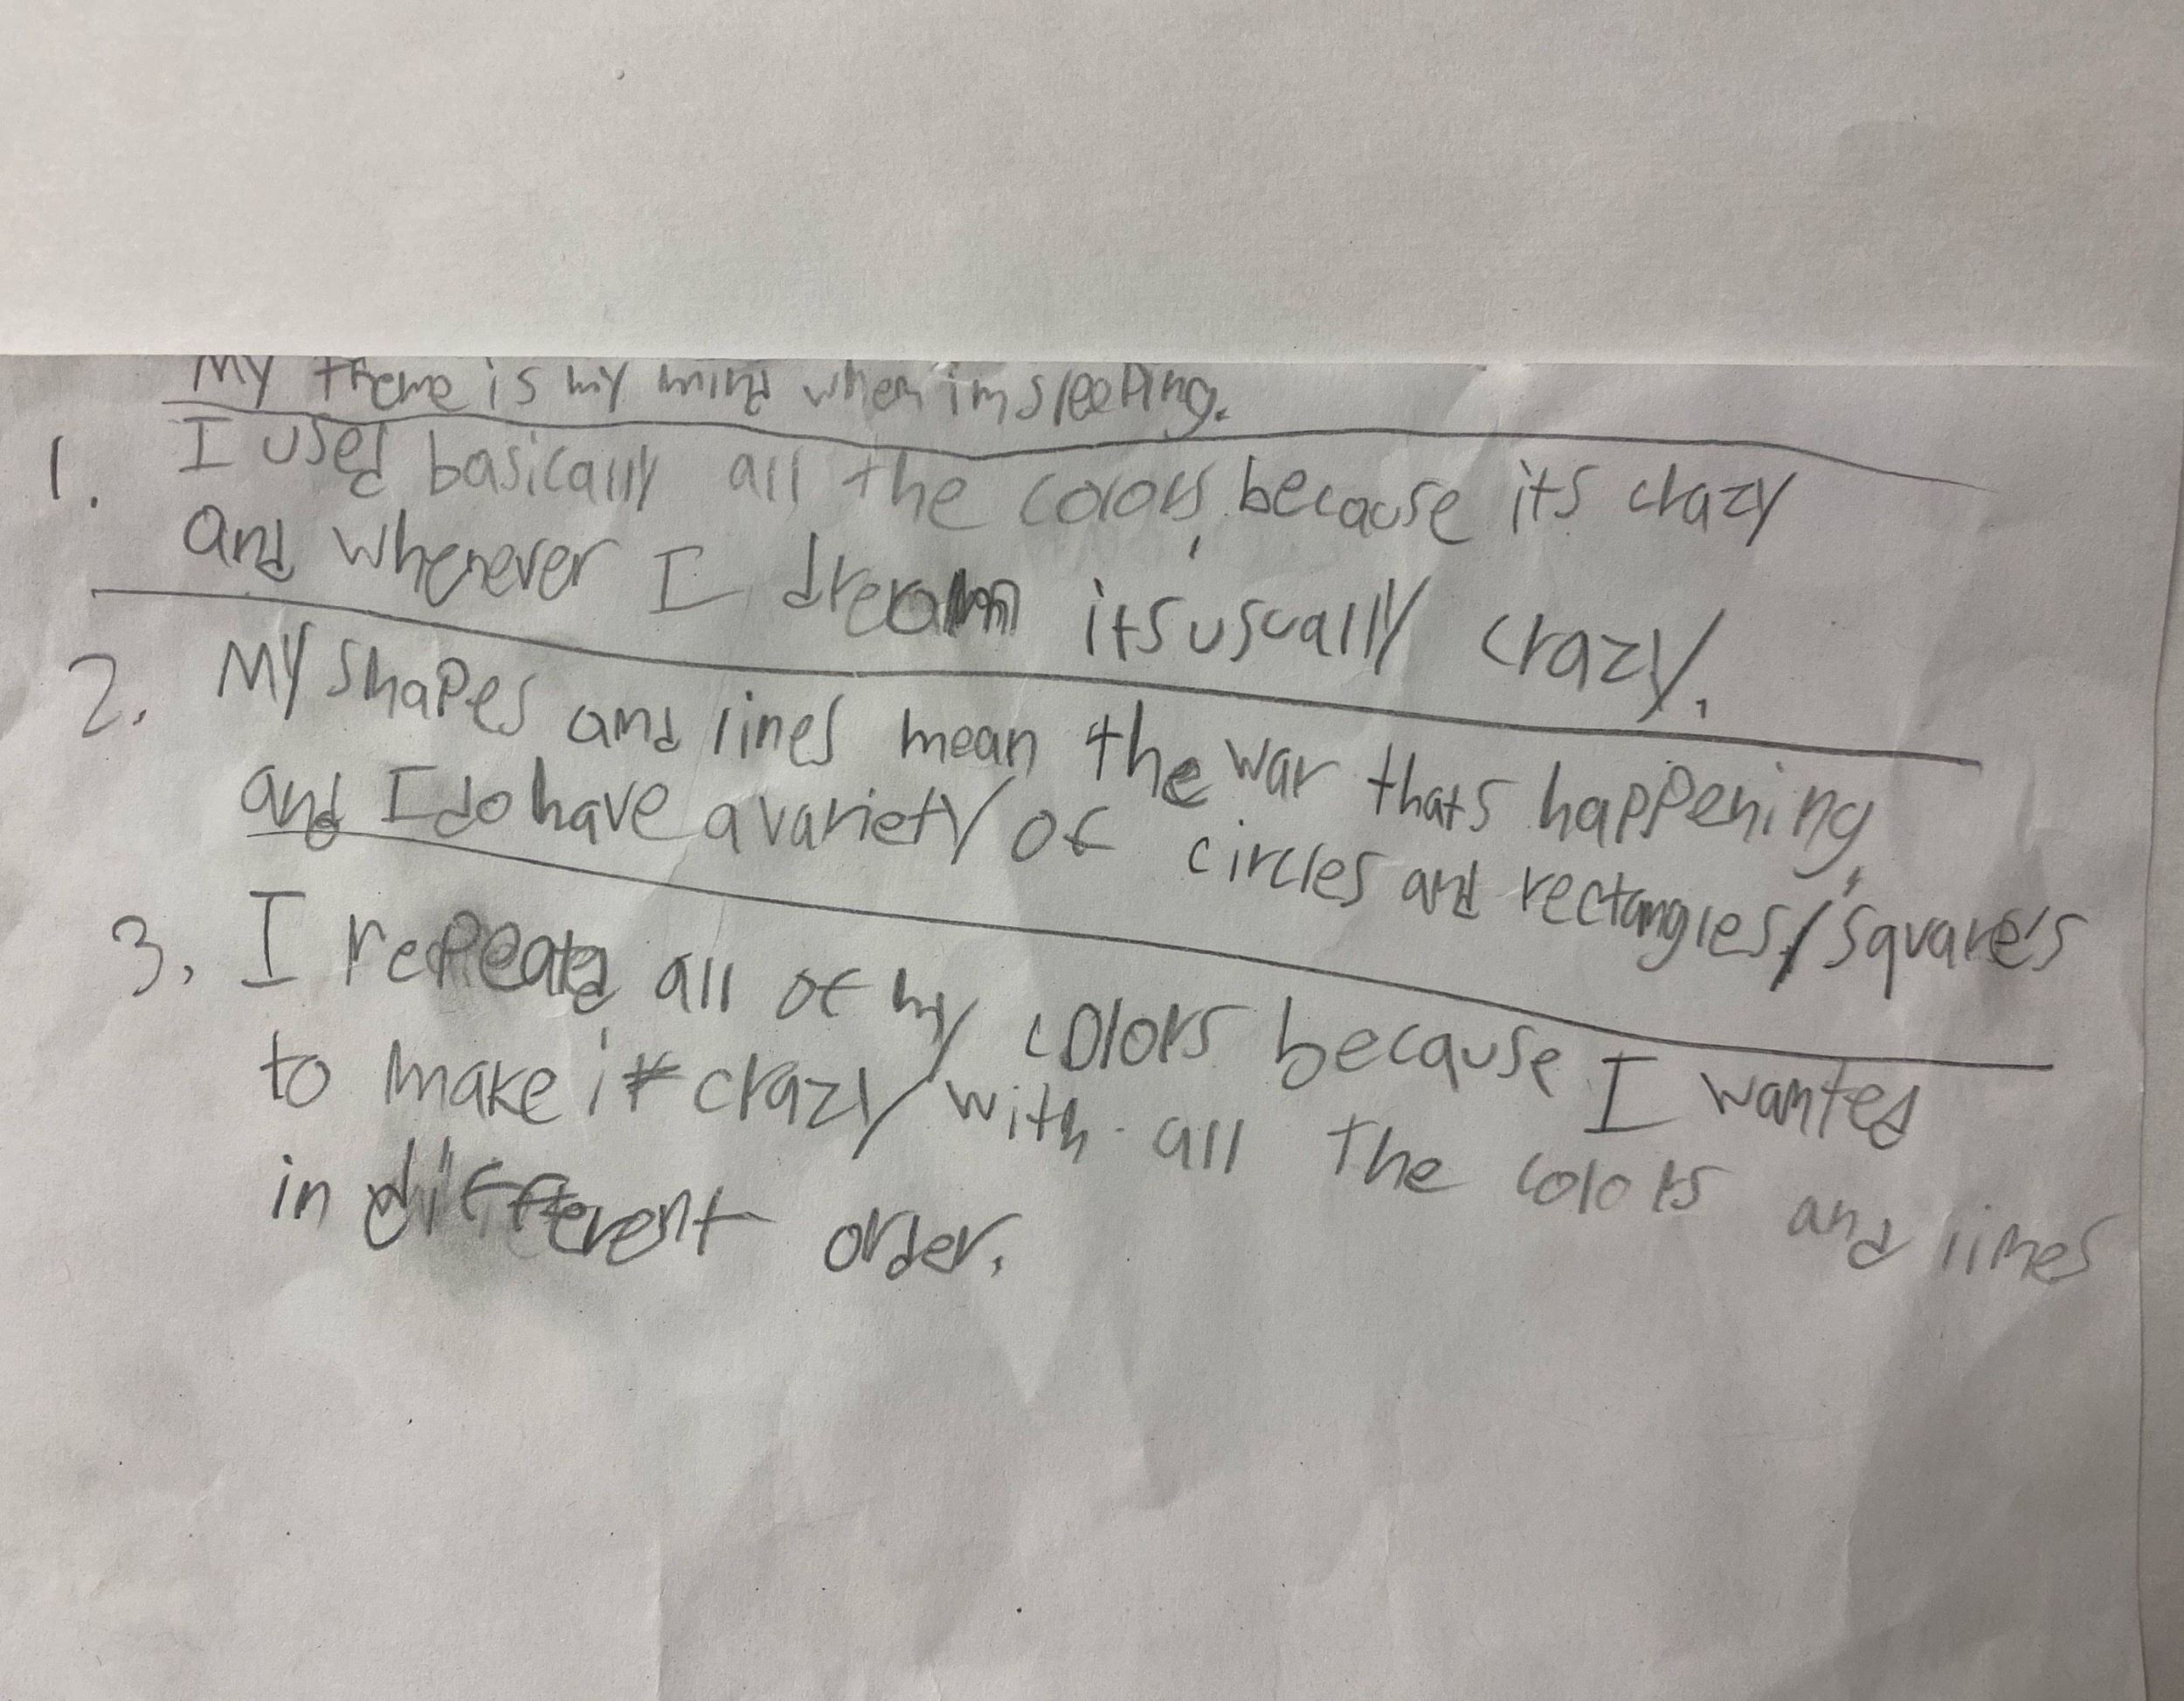 My theme is my mind when im sleeping.
1. I used basically all the colors, because its crazy
and whenever I dream its usually crazy.
2. My shapes and lines mean the war thats happening,
and I do have a variety of circles and rectangles/square's
3. I repeated all of my colors because I wanted
to make it crazy with all the colors and lines
in different order.